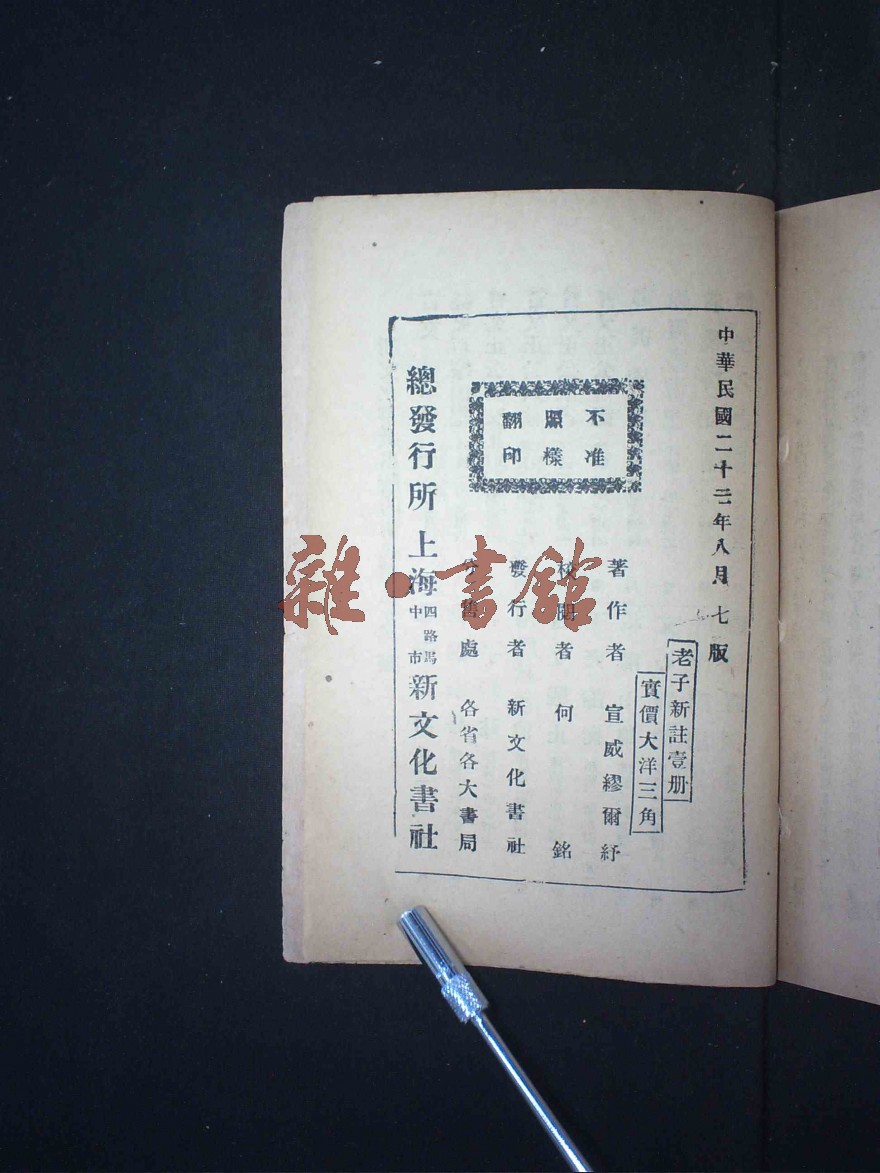 中華民國二十三年八月七版
老子新註壹册
實價大洋三角
不准
照樣
翻印
著作者 宣威繆爾紓
校閱者 何銘
發行者 新文化書社
分售處 各省各大書局
總發行所 上海 四路馬中市 新文化書社
雜·書館